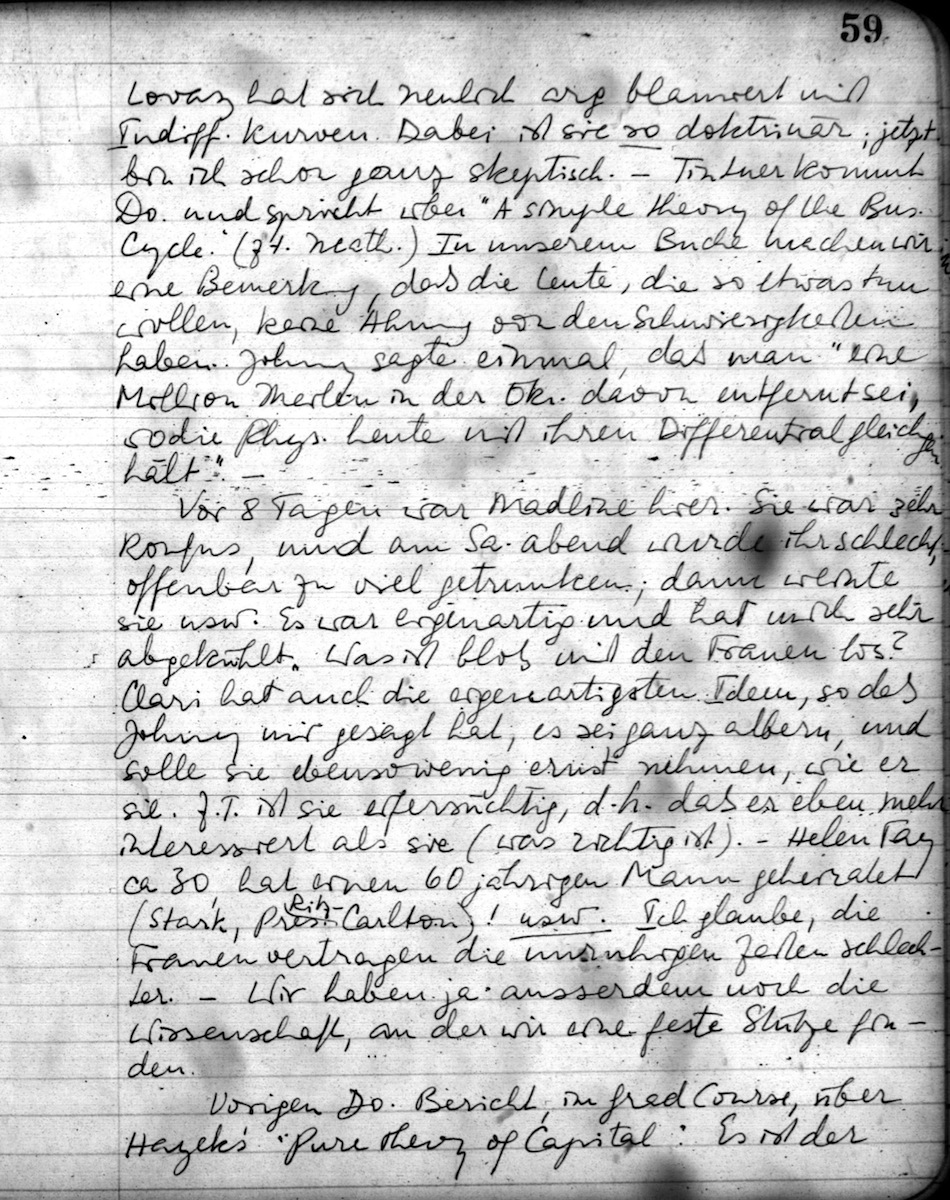 59
Lovasz hat sich neulich arg blamiert mit
Indiff. Kurven. Dabei ist sie so doktrinär; jetzt
bin ich schon ganz skeptisch. – Tintner kommt
Do. und spricht über "A simple theory of the Bus.
Cycle." (z. T. Math.) In unserem Buche machen wir
eine Bemerkg, daß die Leute, die so etwas tun
wollen, keine Ahnung von den Schwierigkeiten
haben. Johnny sagte einmal, daß man "eine
Million Meilen in der Ök. davon entfernt sei,
wo die Phys. heute mit ihren Differentialgleichgen
hält". –
Vor 8 Tagen war Madline hier. Sie war sehr
konfus, und am Sa. abend wurde ihr schlecht,
offenbar zu viel getrunken; dann weinte
sie usw. Es war eigenartig und hat mich sehr
abgekühlt. Was ist bloß mit den Frauen los?
Clari hat auch die eigenartigsten Ideen, so daß
Johnny mir gesagt hat, es sei ganz albern, und
solle sie ebensowenig ernst nehmen, wie er
sie. Z.T. ist sie eifersüchtig, d.h. daß er eben mehr
interessiert als sie (was richtig ist). – Helen Fay
ca 30, hat einen 60 jährigen Mann geheiratet
(Stark, Pres. Ritz-Carlton)! usw. Ich glaube, die
Frauen vertragen die unruhigen Zeiten schlech-
ter. – Wir haben ja ausserdem noch die
Wissenschaft, an der wir eine feste Stütze fin-
den.
Vorigen Do. Bericht, im grad Course, über
Hayek's "Pure theory of Capital". Es ist der